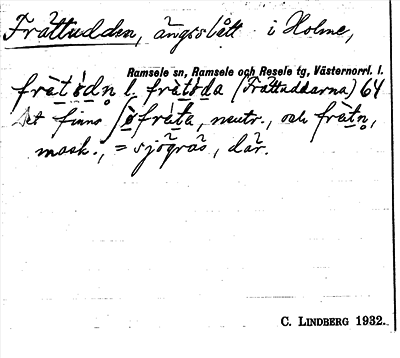 Frättudden, ängsslått i Holme,
Ramsele sn, Ramsele och Resele tg, Västernorrl. l.
frätòdn l. frätòda (Frättuddarna) 64
Det finns sjöfräta, neutr., och frätn,
mask., = sjögräs, där.
C. LINDBERG 1932.